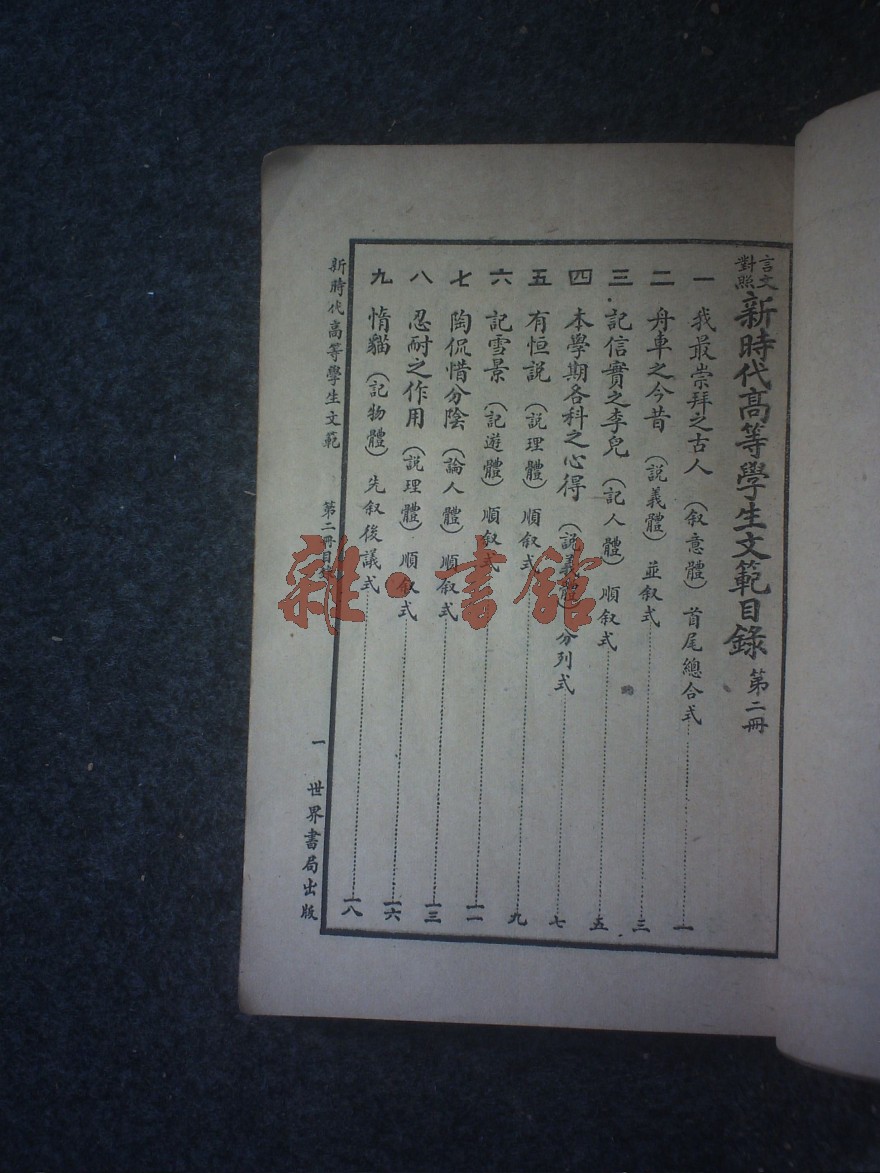 言文對照新時代高等學生文範目錄 第二冊
一 我最崇拜之古人 (叙意體) 首尾總合式 一
二 舟車之今昔 (説義體) 並叙式 三
三 記信實之李兒 (記人體) 順叙式 五
四 本學期各科之心得 (説義體) 分列式 七
五 有恒説 (説理體) 順叙式 九
六 記雪景 (記遊體) 順叙式 一一
七 陶侃惜分陰 (論人體) 順叙式 一三
八 忍耐之作用 (説理體) 順叙式 一六
九 惰貓 (記物體) 先叙後議式 一八
新時代高等學生文範 第二冊目錄 一 世界書局出版
雜·書館